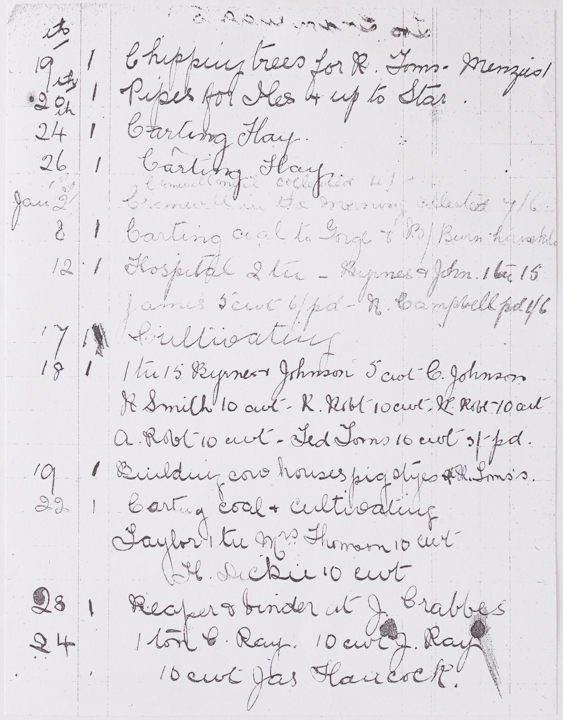 19 1 Chipping trees for R. Toms - Menzies 1
20 1 Pipes for Mes & up to Star.
24 1 Carting Hay.
26 1 Carting Hay.
collected 4/-
Jan 2 Cromwell in the morning collected 7/6.
8 1 Carting coal to Gorge & B/Burn household
12 1 Hospital 2 tn - Byrne & John. 1 tn 15
James 5 cwt 6/pd - R. Campbell pd 4/6
17 1 Cultivating
18 1 1 tn 15 Byrne & Johnson 5 cwt C. Johnson
R Smith 10 cwt - R. Robt 10 cwt. Robt 10 cwt
A. Robt 10 cwt - Ted Toms 10 cwt 5/- pd.
19 1 Building cow houses pig styes R. Toms's.
22 1 Carting coal & cultivating
Taylor 1 tn Mrs Thomson 10 cwt
H. Dickie 10 cwt
23 1 Reaper & binder at J. Crabbes
24 1 ton C. Ray. 10 cwt J. Ray
10 cwt Jas Hancock.